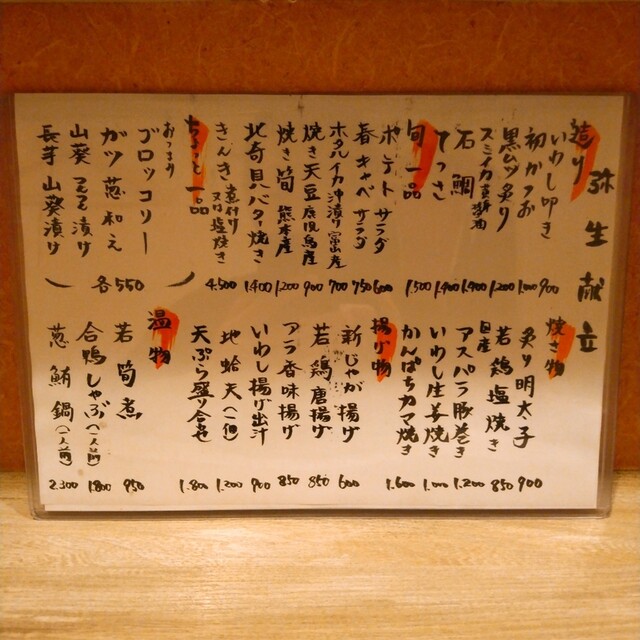 弥生献立
造り
いわし叩き 900
初かつお 1.000
黒ムツ炙り 1.200
スミイカ 1.400
石鯛 1.400
てっさ 1.500
旬一品
ポテトサラダ 600
春キャベサラダ 750
ホタルイカ沖漬け 富山産 700
焼き天豆 鹿児島産 900
焼き筍 熊本産 1.200
北寄貝バター焼き 1.400
きんき 煮付け又は塩焼き 4.500
ちょっと一品
おつまみ
ブロッコリー
ガツ葱和え
山葵漬け
長芋山葵漬け
各550
焼き物
炙り明太子 900
国産若鶏塩焼き 850
アスパラ豚巻き 1.200
いわし生姜焼き 1.000
かんぱちカマ焼き 1.600
揚げ物
新じゃが揚げ 600
若鶏唐揚げ 850
アラ香味揚げ 850
いわし揚げ出汁 900
地蛤天(一個) 1.200
天ぷら盛り合せ 1.800
温物
若筍煮 950
合鴨しゃぶ(一人前) 1.800
葱鮪鍋(一人前) 2.300